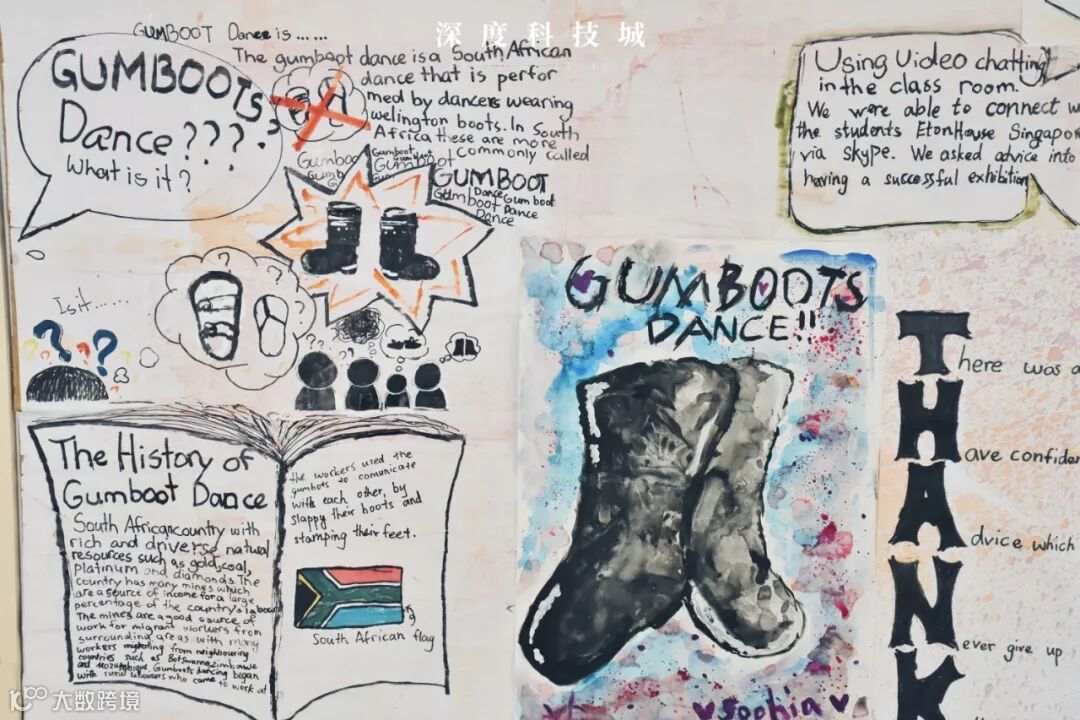 深度科技城
GUMBOOT Dance is ......
The gumboot dance is a South African
dance that is perfor
med by dancers wearing
welington boots. In South
Africa these are more
commonly called
GUMBOOT
Dance Gum boot
Gumboot Dance
Dance
Gumboot
Gumboot
GUMBOOTS
Dance????
What is it?
Is it......
Using Video chatting
in the class room.
We were able to connect
the students EtonHouse Singapor
via skype. We asked advice into
having a successful exhibition
The History of
Gumboot Dance
South African country with
rich and driverse natural
resources such as gold, coal,
platinum and diamonds. The
country has many mines which
are a source of income for a large
percentage of the country's labour
The mines are a good source of
work for migrant workers from
surrounding areas with many
workers migrating from neighbouring
countries such as Botswana, zimbabwe
and mozambique. Gumboots dancing began
with rural labourers who came to work at
the workers used the
gumbots to comunicate
with each other, by
slappy their boots and
stamping their feet.
South African flag
GUMBOOTS
DANCE!!
Sophia
There was a
Have confiden
Advice which
Never give up
K
大数跨境